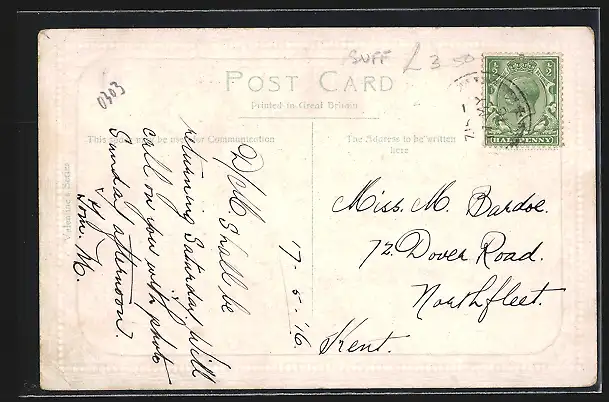 SUFF £3 50
0303
POST CARD
Printed in Great Britain
This space may be used for Communication
The Address to be written
here
Valentine's Series
HALFPENNY
17-5-'16.
D/M. Shall be
returning Saturday. Will
call on you with photo
Sunday afternoon.
Tom. M.
Miss. M. Bardoe.
72. Dover Road.
Northfleet.
Kent.